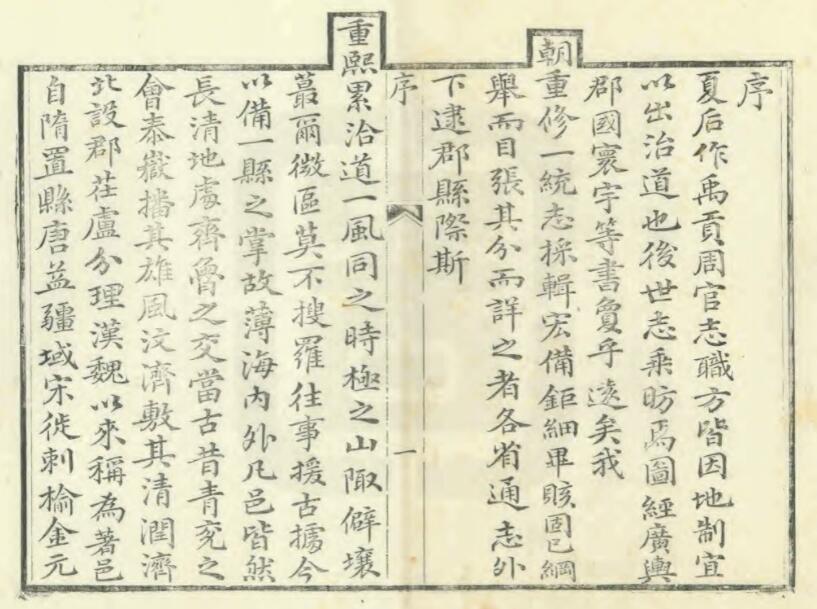 序
夏后作禹貢周官志職方皆因地制宜
以出治道也後世志乘昉焉圖經廣輿
郡國寰宇等書夐乎遠矣我
朝重修一統志採輯宏備鉅細畢賅固已綱
舉而目張其分而詳之者各省通志外
下逮郡縣際斯
序
一
重熙累洽道一風同之時極之山陬僻壤
蕞爾微區莫不搜羅往事援古據今
以備一縣之掌故薄海內外凡邑皆然
長清地處齊魯之交當古昔青兗之
會泰嶽播其雄風汶濟敷其清潤濟
北設郡茌盧分理漢魏以來稱為著邑
自隋置縣唐益疆域宋徙刺榆金元